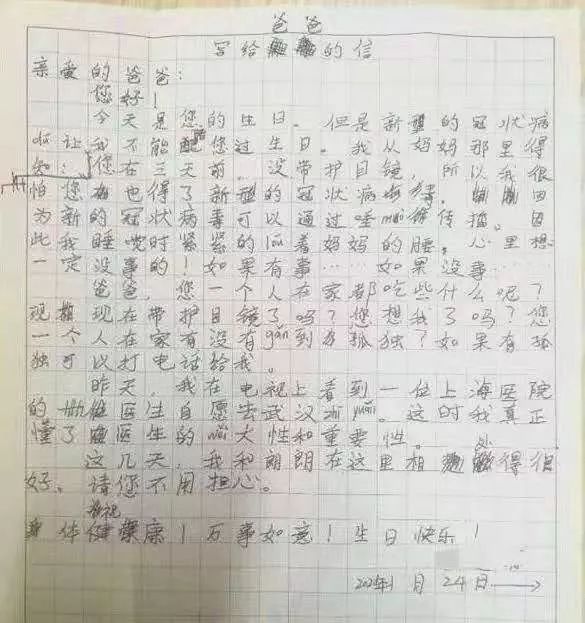 爸爸
写给的信
亲爱的爸爸:
您好!
今天是您的生日。但是新型的冠状病
让我不能陪您过生日。我从妈妈那里得
知:您在三天前,没带护目镜,所以我很
怕您也得了新型的冠状病毒。因
为新的冠状病毒可以通过唾mò传播。因
此我睡觉时紧紧的lǒu着妈妈的腰。心里想
一定没事的!如果有事……如果没事……
爸爸,您一个人在家都吃些什么呢?
现在带护目镜了吗?您想我了吗?您
一个人在家有没有gǎn到孤独?如果有孤
独可以打电话给我。
昨天,我在电视上看到一位上海医院
的医生自愿去武汉yuán。这时我真正
懂了医生的wěi大性和重要性。
这几天,我和朗朗在这里相处得很
好。请您不用担心。
祝
身体健康!万事如意!生日快乐!
1月24日